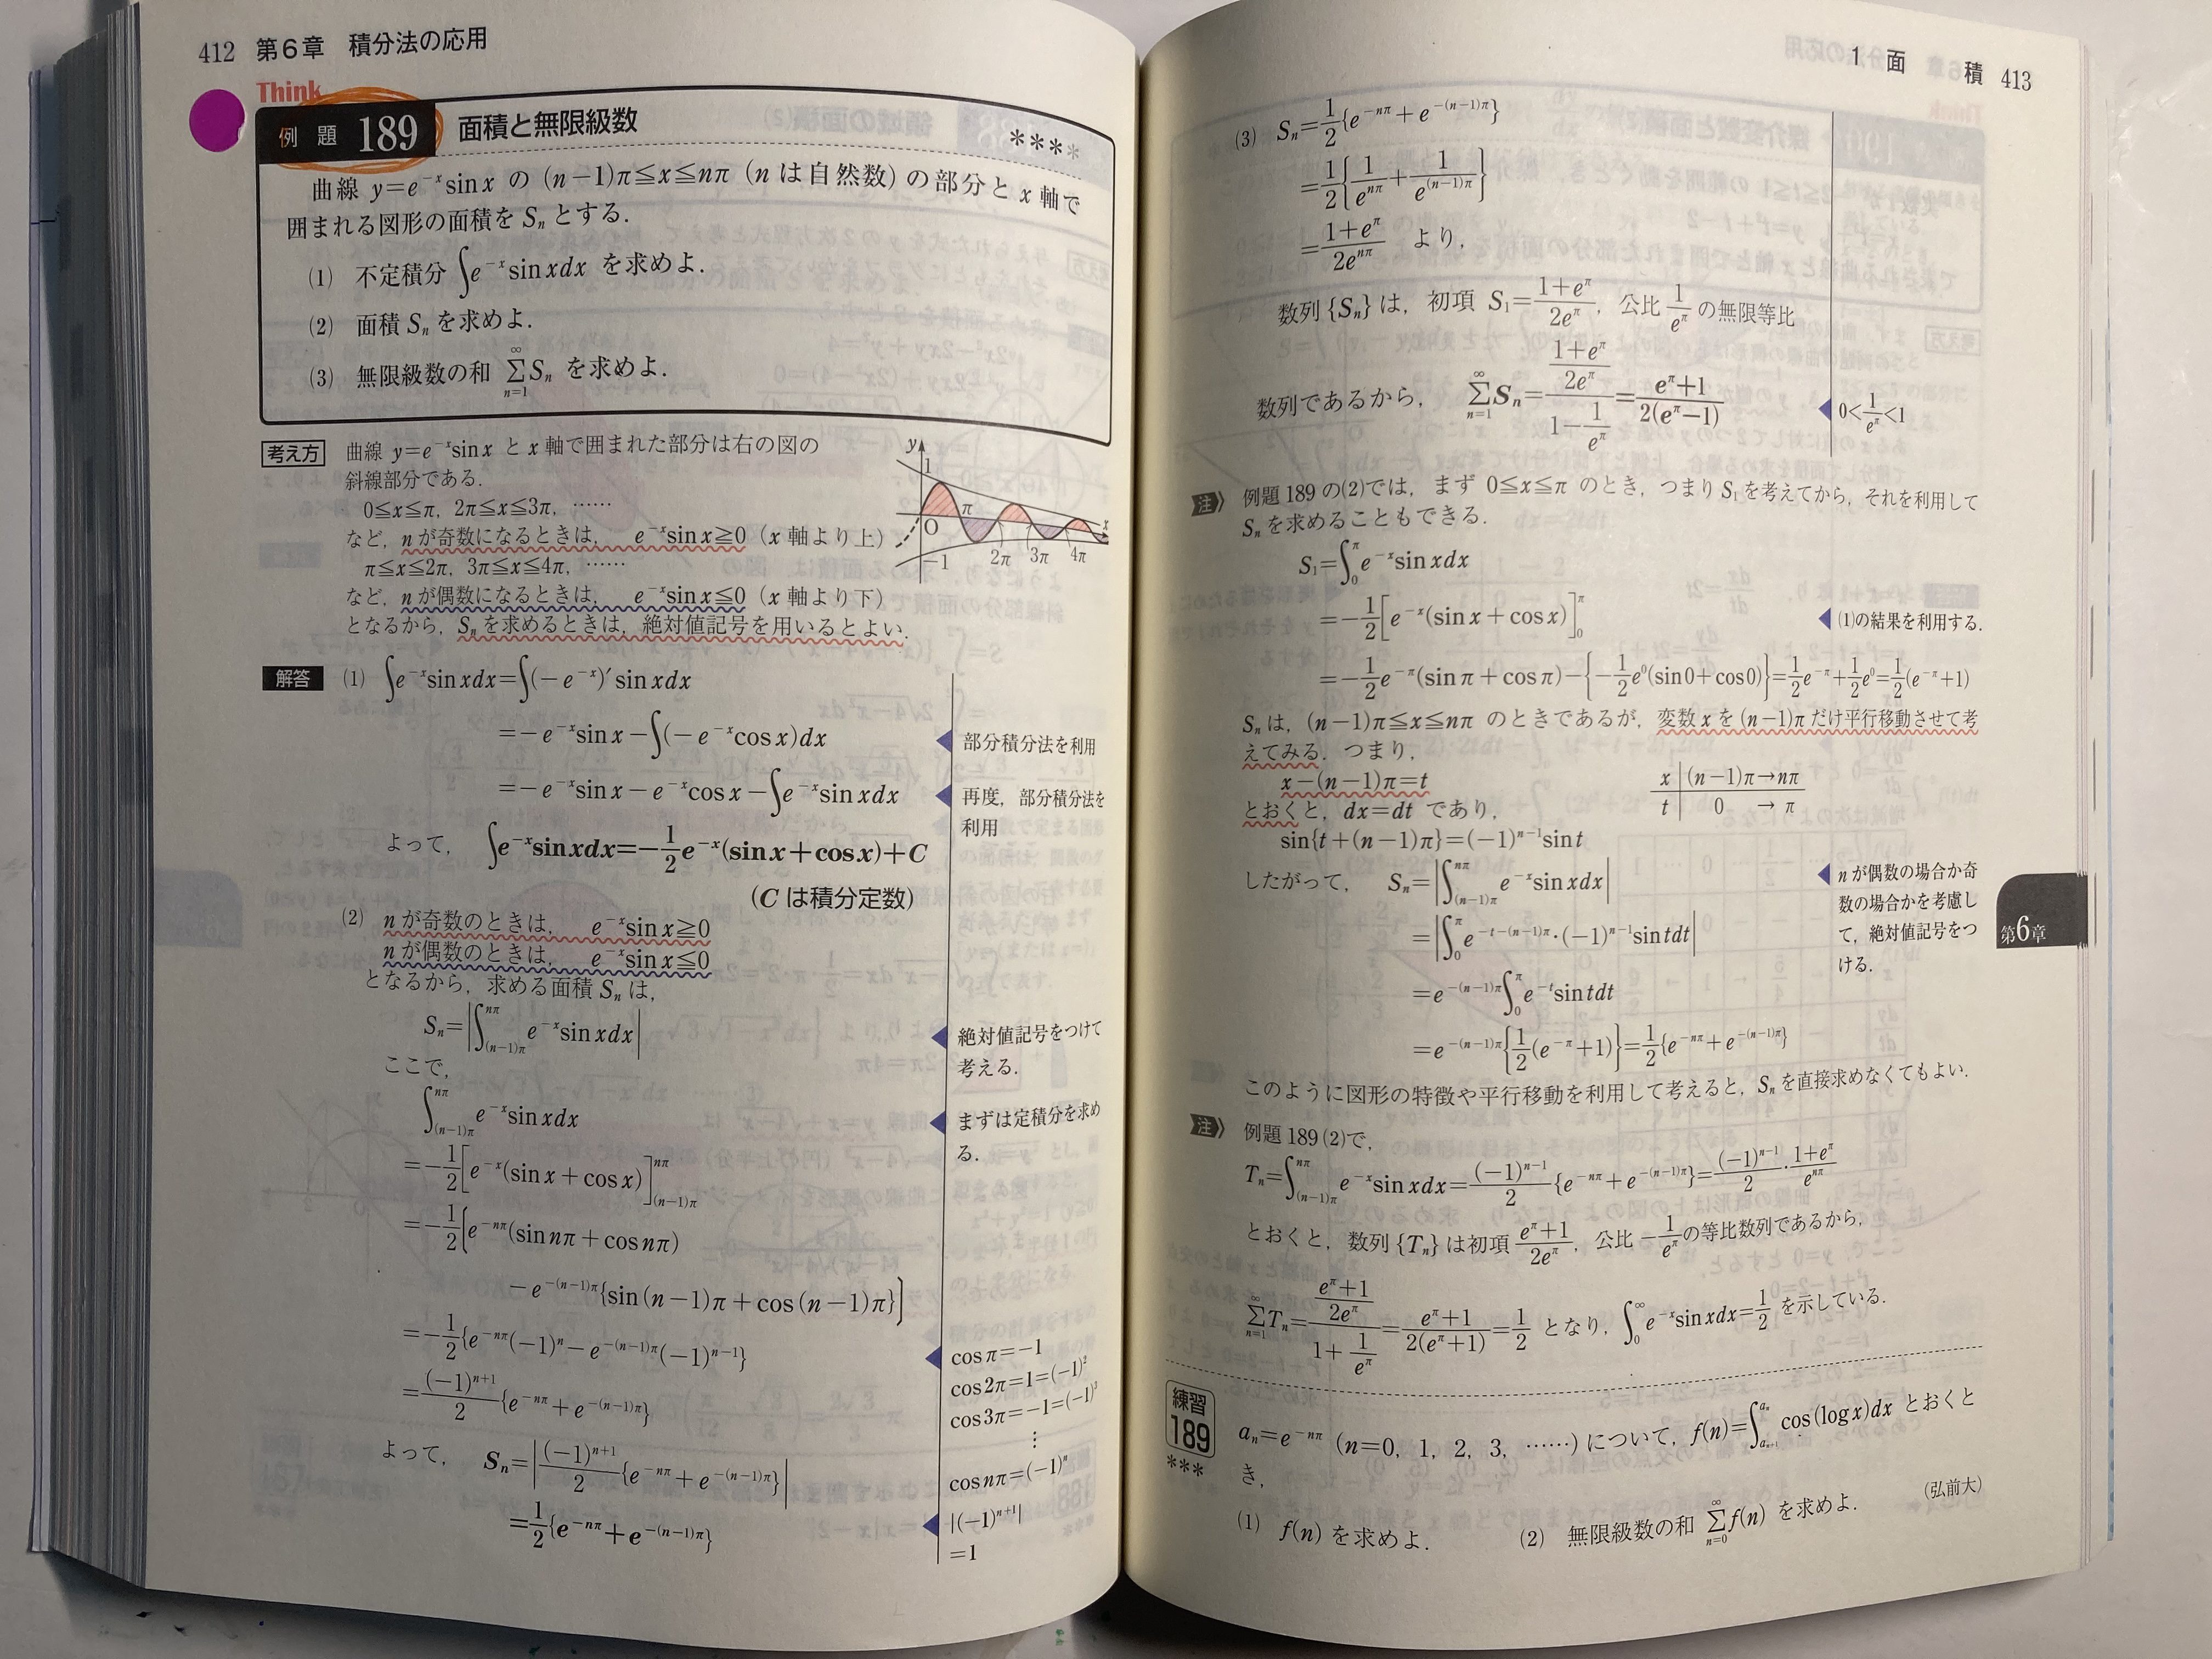 412 第6章 積分法の応用
Think
例題 189 面積と無限級数 ****
曲線 y=e^{-x}sin x の (n-1)π≦x≦nπ (n は自然数) の部分と x 軸で
囲まれる図形の面積を S_n とする.
(1) 不定積分 ∫e^{-x}sin xdx を求めよ.
(2) 面積 S_n を求めよ.
(3) 無限級数の和 Σ_{n=1}^{∞}S_n を求めよ.
考え方 曲線 y=e^{-x}sin x と x 軸で囲まれた部分は右の図の
斜線部分である.
0≦x≦π, 2π≦x≦3π, ……
など, n が奇数になるときは, e^{-x}sin x≧0 (x 軸より上)
π≦x≦2π, 3π≦x≦4π, ……
など, n が偶数になるときは, e^{-x}sin x≦0 (x 軸より下)
となるから, S_n を求めるときは, 絶対値記号を用いるとよい.
y 1 O π 2π 3π 4π x -1
解答 (1) ∫e^{-x}sin xdx=∫(-e^{-x})′sin xdx
=-e^{-x}sin x-∫(-e^{-x}cos x)dx
部分積分法を利用
=-e^{-x}sin x-e^{-x}cos x-∫e^{-x}sin xdx
再度, 部分積分法を
利用
よって, ∫e^{-x}sin xdx=-\frac{1}{2}e^{-x}(sin x+cos x)+C
(C は積分定数)
(2) n が奇数のときは, e^{-x}sin x≧0
n が偶数のときは, e^{-x}sin x≦0
となるから, 求める面積 S_n は,
S_n=|∫_{(n-1)π}^{nπ} e^{-x}sin xdx|
絶対値記号をつけて
考える.
ここで,
∫_{(n-1)π}^{nπ} e^{-x}sin xdx
まずは定積分を求め
る.
=-\frac{1}{2}[e^{-x}(sin x+cos x)]_{(n-1)π}^{nπ}
=-\frac{1}{2}[e^{-nπ}(sin nπ+cos nπ)
-e^{-(n-1)π}{sin(n-1)π+cos(n-1)π}]
=-\frac{1}{2}{e^{-nπ}(-1)^n-e^{-(n-1)π}(-1)^{n-1}}
=\frac{(-1)^{n+1}}{2}{e^{-nπ}+e^{-(n-1)π}}
cos π=-1
cos 2π=1=(-1)^2
cos 3π=-1=(-1)^3
⋮
cos nπ=(-1)^n
よって, S_n=|\frac{(-1)^{n+1}}{2}{e^{-nπ}+e^{-(n-1)π}}|
=\frac{1}{2}{e^{-nπ}+e^{-(n-1)π}}
|(-1)^{n+1}|
=1
1 面 積 413
(3) S_n=\frac{1}{2}{e^{-nπ}+e^{-(n-1)π}}
=\frac{1}{2}{\frac{1}{e^{nπ}}+\frac{1}{e^{(n-1)π}}}
=\frac{1+e^π}{2e^{nπ}} より,
数列 {S_n} は, 初項 S_1=\frac{1+e^π}{2e^π}, 公比 \frac{1}{e^π} の無限等比
数列であるから, Σ_{n=1}^{∞}S_n=\frac{\frac{1+e^π}{2e^π}}{1-\frac{1}{e^π}}=\frac{e^π+1}{2(e^π-1)}
0<\frac{1}{e^π}<1
注 例題 189 の(2)では, まず 0≦x≦π のとき, つまり S_1 を考えてから, それを利用して
S_n を求めることもできる.
S_1=∫_0^π e^{-x}sin xdx
=-\frac{1}{2}[e^{-x}(sin x+cos x)]_0^π
(1)の結果を利用する.
=-\frac{1}{2}e^{-π}(sin π+cos π)-{-\frac{1}{2}e^0(sin 0+cos 0)}=\frac{1}{2}e^{-π}+\frac{1}{2}e^0=\frac{1}{2}(e^{-π}+1)
S_n は, (n-1)π≦x≦nπ のときであるが, 変数 x を (n-1)π だけ平行移動させて考
えてみる. つまり,
x-(n-1)π=t
とおくと, dx=dt であり,
x | (n-1)π→nπ
t | 0 → π
sin{t+(n-1)π}=(-1)^{n-1}sin t
したがって, S_n=|∫_{(n-1)π}^{nπ} e^{-x}sin xdx|
=|∫_0^π e^{-t-(n-1)π}・(-1)^{n-1}sin tdt|
n が偶数の場合か奇
数の場合かを考慮し
て, 絶対値記号をつ
ける.
第6章
=e^{-(n-1)π}∫_0^π e^{-t}sin tdt
=e^{-(n-1)π}{\frac{1}{2}(e^{-π}+1)}=\frac{1}{2}{e^{-nπ}+e^{-(n-1)π}}
このように図形の特徴や平行移動を利用して考えると, S_n を直接求めなくてもよい.
注 例題 189 (2)で,
T_n=∫_{(n-1)π}^{nπ} e^{-x}sin xdx=\frac{(-1)^{n-1}}{2}{e^{-nπ}+e^{-(n-1)π}}=\frac{(-1)^{n-1}}{2}・\frac{1+e^π}{e^{nπ}}
とおくと, 数列 {T_n} は初項 \frac{e^π+1}{2e^π}, 公比 -\frac{1}{e^π} の等比数列であるから,
Σ_{n=1}^{∞}T_n=\frac{\frac{e^π+1}{2e^π}}{1+\frac{1}{e^π}}=\frac{e^π+1}{2(e^π+1)}=\frac{1}{2} となり, ∫_0^∞ e^{-x}sin xdx=\frac{1}{2} を示している.
練習 189 *** a_n=e^{-nπ} (n=0, 1, 2, 3, ……) について, f(n)=∫_{a_{n+1}}^{a_n} cos(log x)dx とおくと
き,
(弘前大)
(1) f(n) を求めよ. (2) 無限級数の和 Σ_{n=0}^{∞}f(n) を求めよ.